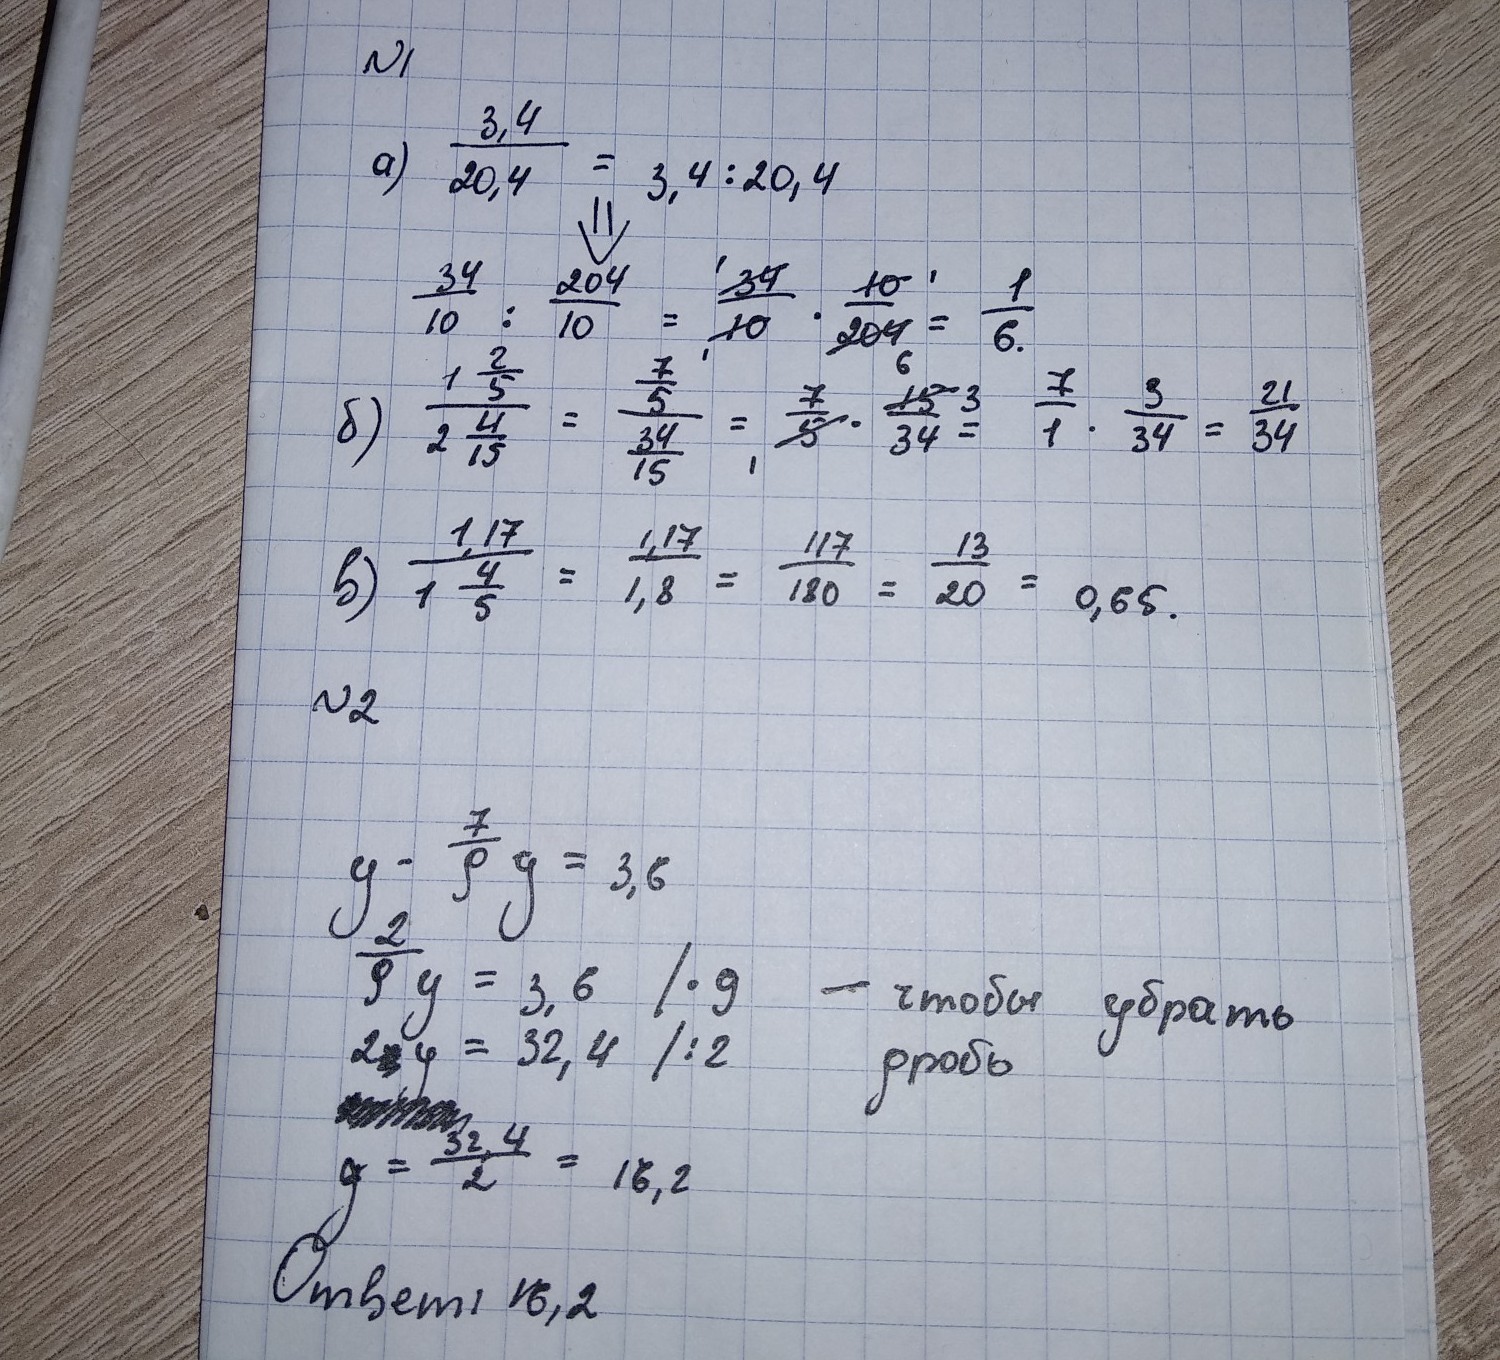 №1
а) 3,4/20,4 = 3,4 : 20,4
⇓
34/10 : 204/10 = 34/10 · 10/204 = 1/6.
б) 1 2/5 / 2 4/15 = 7/5 / 34/15 = 7/5 · 15/34 = 7/1 · 3/34 = 21/34
в) 1,17 / 1 4/5 = 1,17/1,8 = 117/180 = 13/20 = 0,65.
№2
y - 7/9 y = 3,6
2/9 y = 3,6 /·9 — чтобы убрать
2y = 32,4 /:2 дробь
y = 32,4/2 = 16,2
Ответ: 16,2